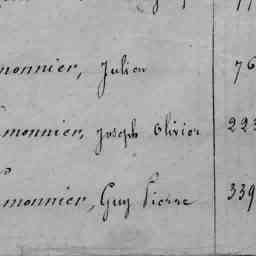 monnier, Julien 76
monnier, joseph olivier 223
monnier, Guy Pierre 339